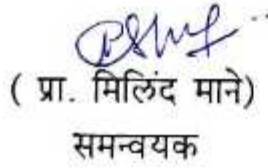 ( प्रा. मिलिंद माने)
समन्वयक